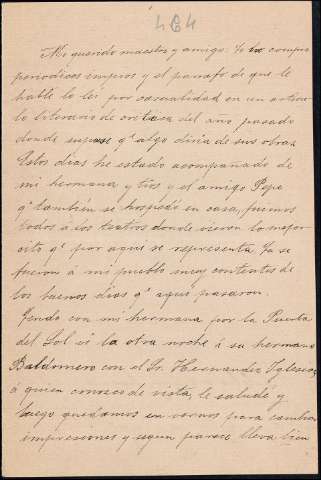 464
Mi querido maestro y amigo: Yo no compro
periodicos impios y el parrafo de que le
hablé lo leí por casualidad en un articu-
lo literario de critica del año pasado
donde supuse qe algo diria de sus obras.
Estos dias he estado acompañado de
mi hermana y tios y el amigo Pepe
qe tambien se hospedó en casa, fuimos
todos á los teatros donde vieron lo mejor-
cito qe por aqui se representa. Ya se
fueron á mi pueblo muy contentos de
los buenos dias qe aqui pasaron.
Yendo con mi hermana por la Puerta
del Sol vi la otra noche á su hermano
Baldomero con el Sr. Hernandez Iglesias,
á quien conozco de vista, le saludé y
luego quedamos en vernos para cambiar
impresiones y segun parece lleva bien